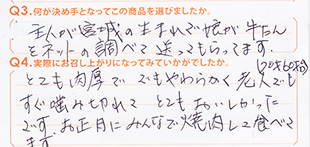 Q3.何が決め手となってこの商品を選びましたか。
主人が宮城の生まれで娘が牛たん
をネットの調べて送ってもらってます。
Q4.実際にお召し上がりになってみていかがでしたか。
とても肉厚で でもやわらかく老人でも
(70才60才)
すぐ噛み切れて とても おいしかった
です。お正月にみんなで焼肉して食べて
ます